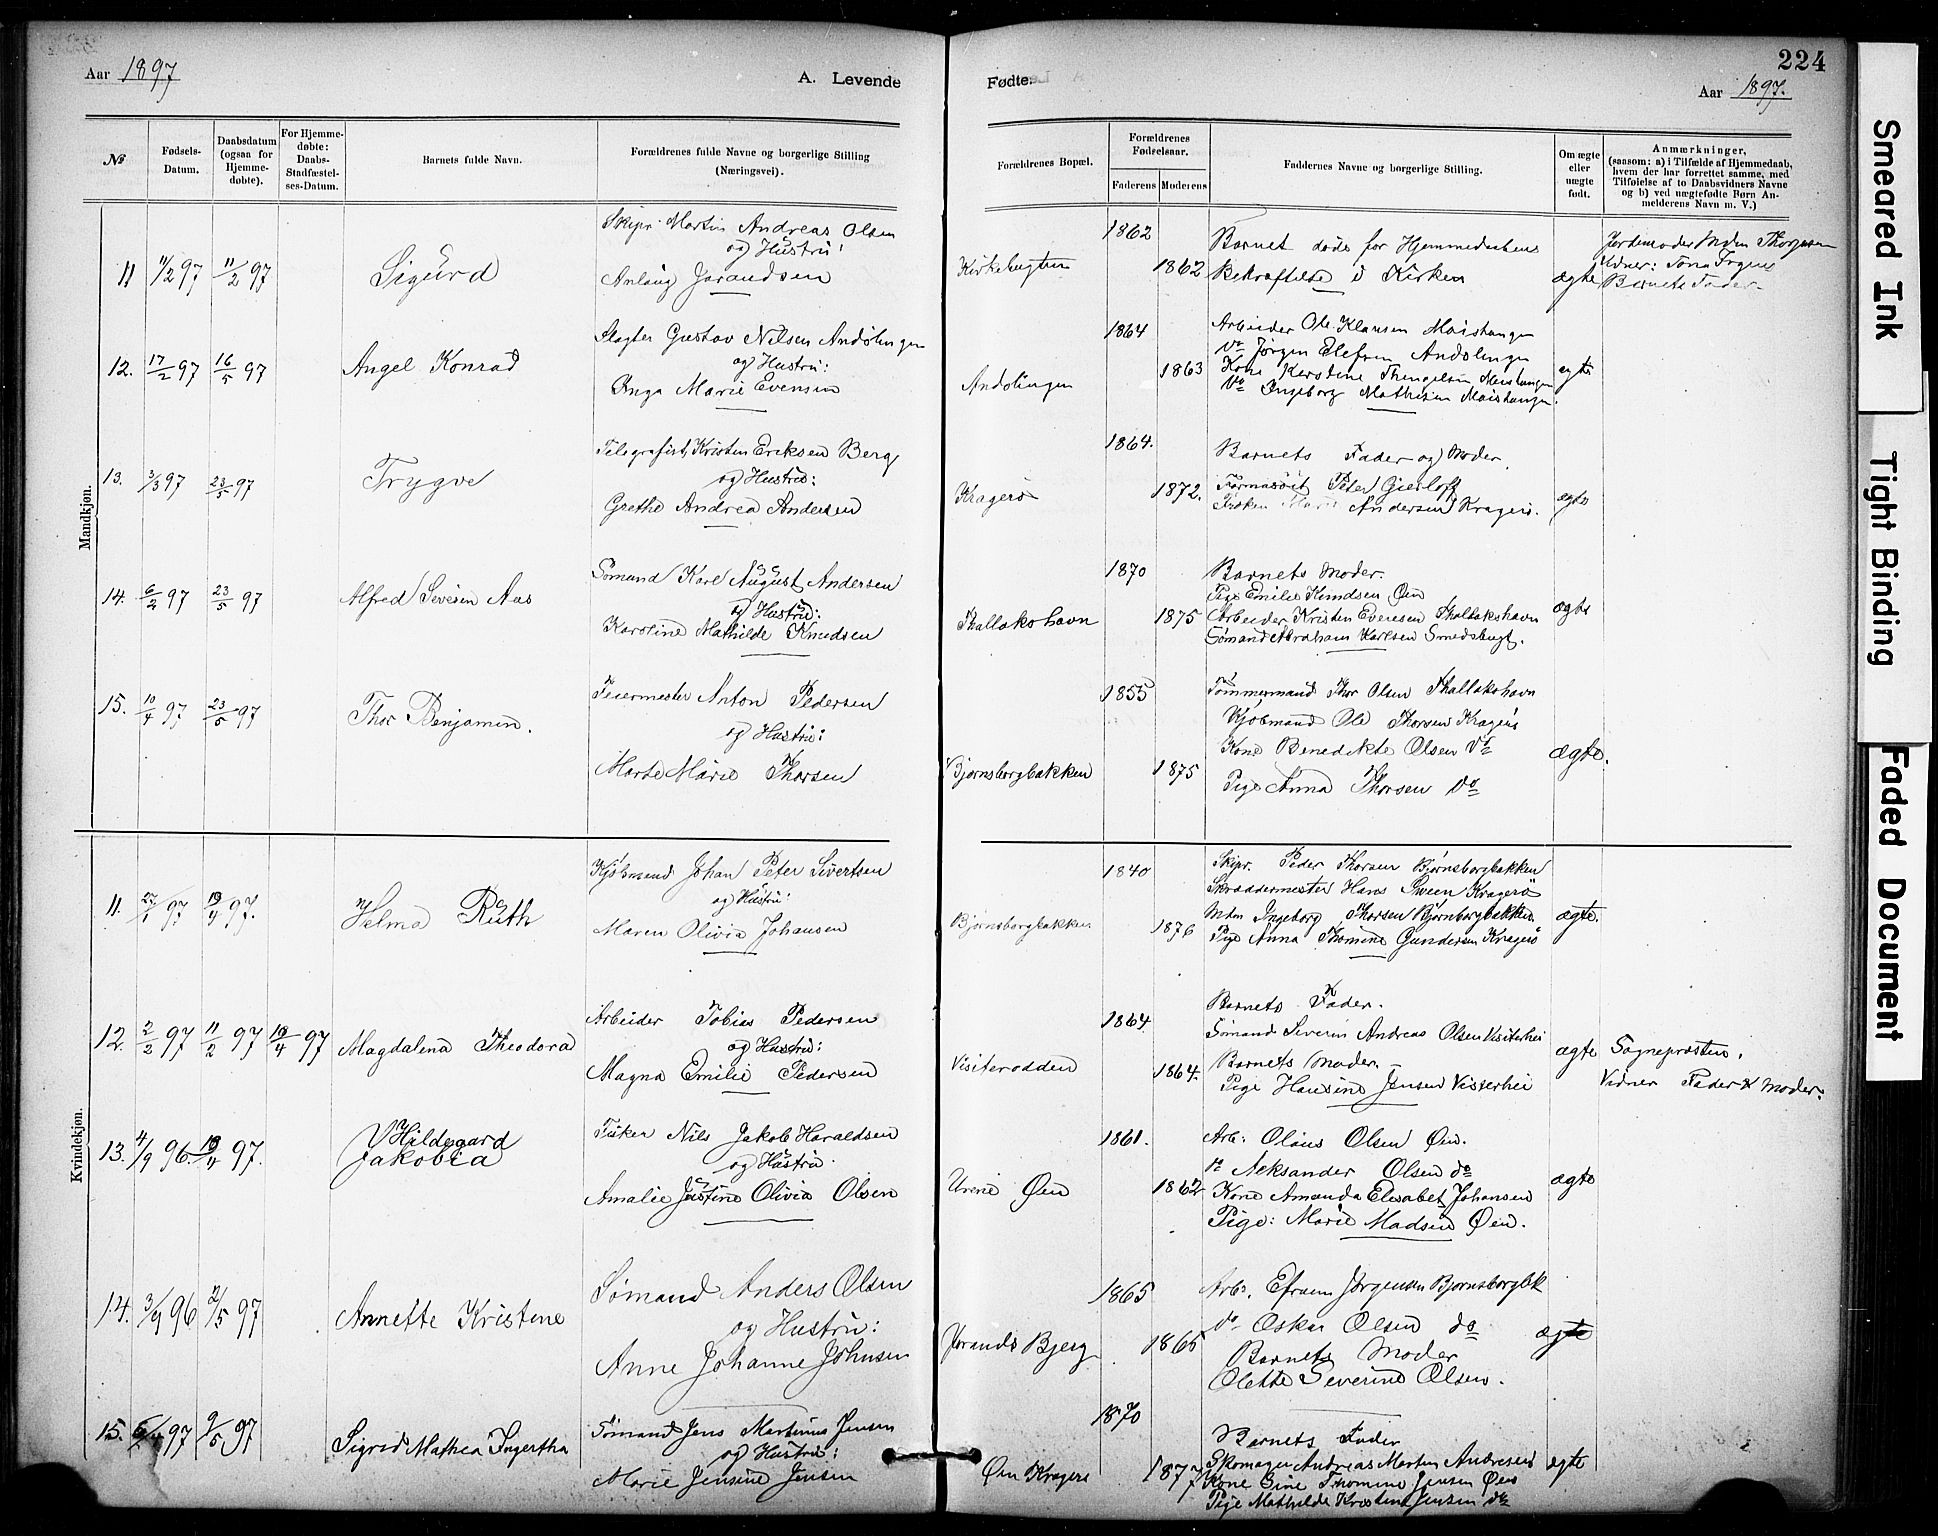 Aar 1897
A. Levende
Fødte.
224
Aar 1897.
№
Fødsels-Datum.
Daabsdatum (ogsaa for Hjemmedøbte).
For Hjemmedøbte: Daabs-Stadfæstelses-Datum.
Barnets fulde Navn.
Forældrenes fulde Navne og borgerlige Stilling (Næringsvei).
Forældrenes Bopæl.
Forældrenes Fødselsaar.
Faderens
Moderens
Faddernes Navne og borgerlige Stilling.
Om ægte eller uægte født.
Anmærkninger, (saasom: a) i Tilfælde af Hjemmedaab, hvem der har forrettet samme, med Tilføielse af to Daabsvidners Navne og b) ved uægtefødte Børn Anmelderens Navn m. V.)
Mandkjøn.
11 11/2 97 11/2 97
Sigurd
Skipr. Martin Andreas Olsen
og Hustru:
Anlaug Jorandsen
Kirkebugten
1862
1862
Barnet døde før Hjemmedaabens
Bekræftelse i Kirken
ægte
Jordemoder Mdm Thorpsen
Barnets Fader.
12. 17/2 97 16/5 97
Angel Konrad
Slagter Gustav Nilsen Andölingen
og Hustru:
Inga Marie Evensen
Andölingen
1864
1863
Arbeider Ole Klausen
Do Jørgen Andölingen
Kone Kerstine
Do Ingeborg Mathisen
ægte
13. 3/3 97 23/5 97
Trygve
Telegrafist Kristen Eriksen Berg
og Hustru:
Grethe Andrea Andersen
Kragerø
1864.
1872.
Barnets Fader og Moder.
Farmasöit Peter Gierløff
Frøken Marie Andersen Kragerö.
ægte
14. 6/2 97 23/5 97
Alfred Seversen Aas
Sømand Karl August Andersen
og Hustru:
Karoline Mathilde Knudsen
Thallakshavn
1870
1875
Barnets Moder.
Pige Emilie Knudsen Øen
Arbeider Kristen Evensen Thallakshavn
Sømand Abraham Karlsen Smedsbugt.
ægte
15. 10/4 97 23/5 97
Thor Benjamin.
Feiermester Anton Pedersen
og Hustru:
Marte Marie Thorsen
Bjørnsborgbakken
1855
1875
Tømmermand Thor Olsen Thallakshavn
Kjøbmand Ole Thorsen Kragerø
Kone Benedikte Olsen Do
Pige Anna Thorsen Do
ægte.
Kvindekjøn.
11. 27/1 97 19/4 97.
Helma Ruth
Kjøbmand Johan Peter Sivertsen
og Hustru:
Maren Olivia Johansen
Bjørnsborgbakken
1840
1876
Skipr. Peder Thorsen Bjørnsborgbakken
Skræddermester Hans Sween Kragerø
Mdm Ingeborg Thorsen Bjørnborgbakken
Pige Anna Thomine Gundersen Kragerø
ægte.
12. 2/2 97 11/2 97 19/4 97
Magdalena Theodora
Arbeider Tobias Pedersen
og Hustru:
Magna Emilie Pedersen
Visiterodden
1864
1864.
Barnets Fader.
Sømand Severin Andreas Olsen Visiterhei
Barnets Moder.
Pige Hansine Jensen Visterhei
ægte
Sogneprosten.
Vidner Fader & Moder.
13. 4/9 96. 19/4 97.
Hildegard
Jakobia
Fisker Nils Jakob Haraldsen
og Hustru
Amalie Justine Olivia Olsen
Urene Øen
1861.
1862
Arb: Olaus Olsen Øen.
Do Aleksander Olsen do
Kone Amanda Elisabet Johansen
Pige: Marie Madsen Øen.
ægte
14. 3/9 96 2/5 97
Annette Kristene
Sømand Anders Olsen
og Hustru:
Anne Johanne Johnsen
Jorands Bjerg
1865
1865
Arb. Efraem Jørgensen Bjørnsborgbk
do Oskar Olsen do
Barnets Moder
Olette Severine Olsen.
ægte
15. 97 9/5 97
Sigrid Mathea Ingertha
Sømand Jens Martinius Jensen
og Hustru:
Marie Jensine Jensen
Øen Kragerø
1870
1877
Barnets Fader
Skomager Andreas Martin Andresen
Kone Sine Thomine Jensen Øen
Pige Mathilde Kristine Jensen do
ægte
Smeared Ink
Tight Binding
Faded Document